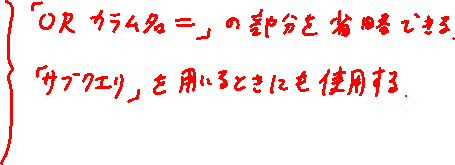 「OR カラム名 =」の部分を省略できる.
「サブクエリ」を用いるときにも使用する.